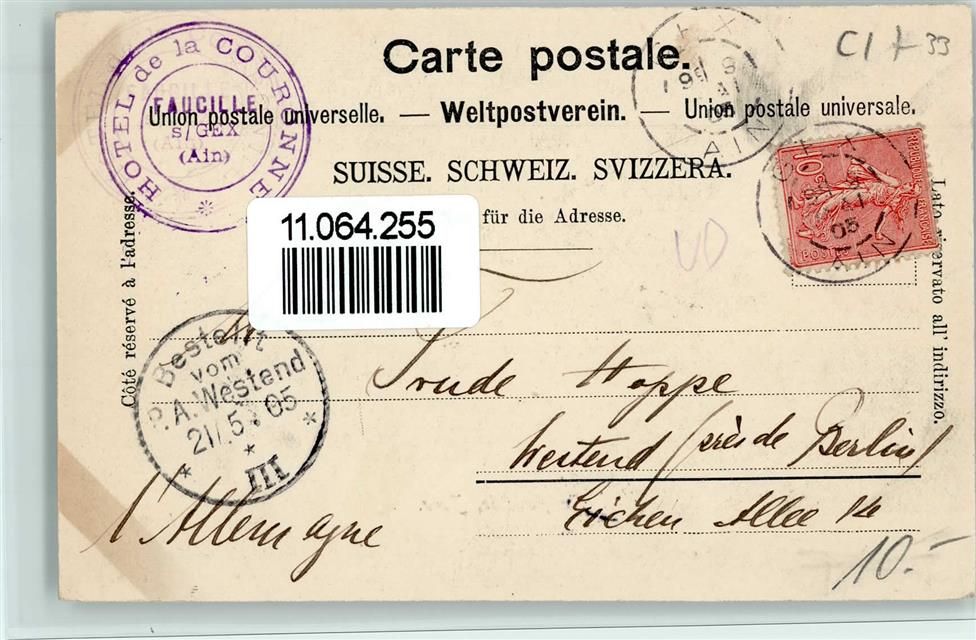 Carte postale.
C1 + 33
Union postale universelle. — Weltpostverein. — Union postale universale.
SUISSE. SCHWEIZ. SVIZZERA.
für die Adresse.
HOTEL de la COURONNE
FAUCILLE
s/GEX
(Ain)
GEX
AIN
GEX
05
AIN
10
POSTES
11.064.255
Côté réservé à l'adresse.
Lato riservato all' indirizzo.
Bestellt
vom
P.A. Westend
21/5 05
III
Trude Hoppe
Westend (près de Berlin)
Eichen Allee 14
l'Allemagne
10.-